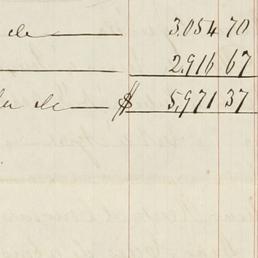 do — 3.054 70
2.916 67
do — $ 5,971 37